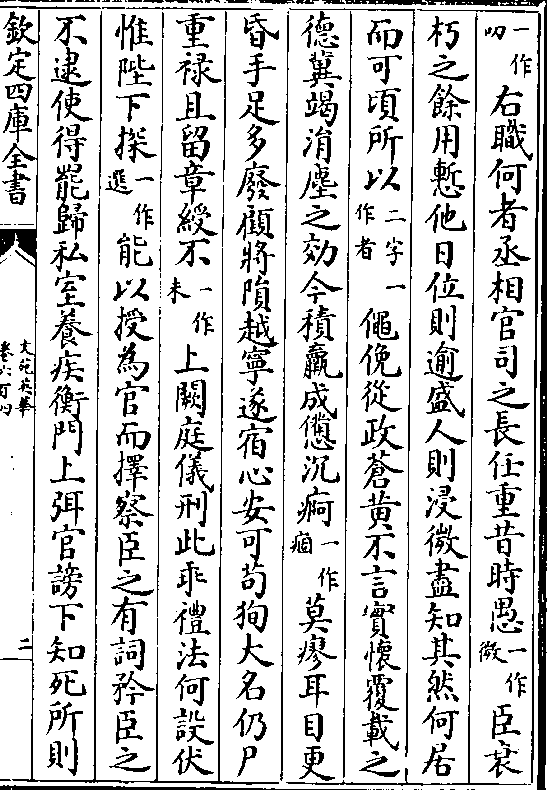 一作叨右職何者丞相官司之長任重昔時愚一作微臣衰
朽之餘用慙他日位則逾盛人則浸微盡知其然何居
而可頃所以二字一作者僶俛從政蒼黄不言實懷覆載之
德冀竭涓塵之効今積羸成憊沉痾一作痼莫瘳耳目更
昏手足多廢顧將隕越寧遂宿心安可苟狥大名仍尸
重禄且留章綬不一作未上闕庭儀刑此乖禮法何設伏
惟陛下揬一作選能以授為官而擇察臣之有詞矜臣之
不逮使得罷歸私室養疾衡門上弭官謗下知死所則
欽定四庫全書
文苑英華
卷六百四
二